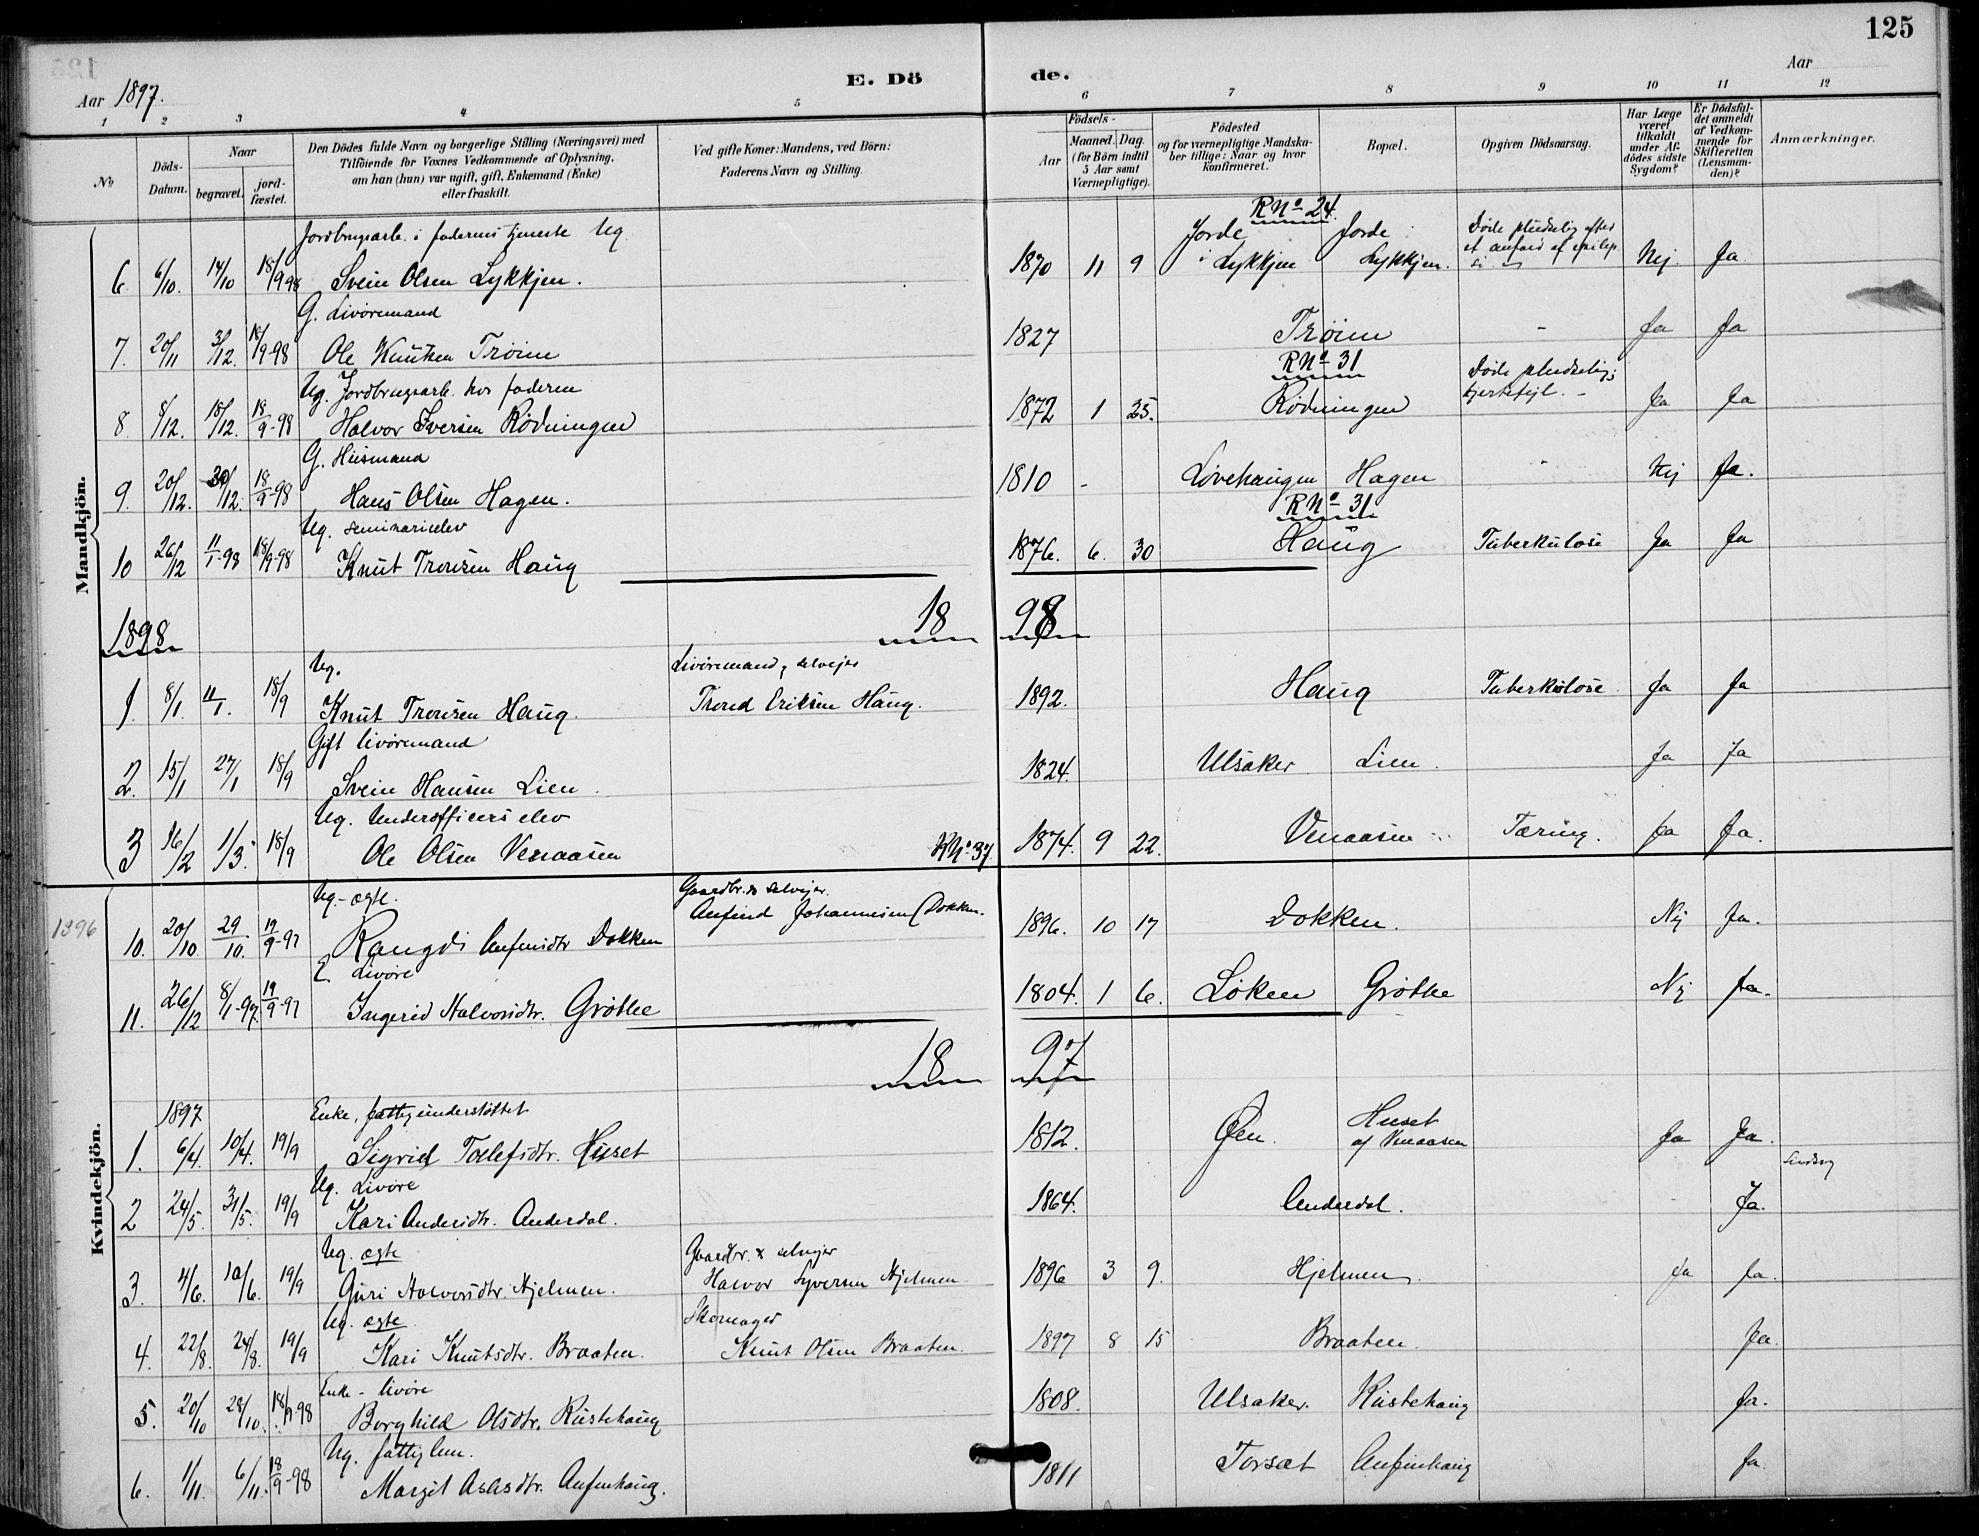 125
Aar 1897.
E. Dö de.
Aar
1 2 3 4 5 6 7 8 9 10 11 12
No
Döds-Datum.
Naar
begravet.
jord-fæstet.
Den Dödes fulde Navn og borgerlige Stilling (Næringsvei) med
Tilföiende for Voxnes Vedkommende af Oplysning,
om han (hun) var ugift, gift, Enkemand (Enke)
eller fraskilt.
Ved gifte Koner: Mandens, ved Börn:
Faderens Navn og Stilling.
Födsels-
Aar
Maaned. Dag.
(for Börn indtil
5 Aar samt
Værnepligtige).
Födested
og for værnepligtige Mandska-
ber tillige: Naar og hvor
konfirmeret.
Bopæl.
Opgiven Dödsaarsag.
Har Læge
været
tilkaldt
under Af-
dödes sidste
Sygdom?
Er Dödsfal-
det anmeldt
af Vedkom-
mende for
Skifteretten
(Lensman-
den)?
Anmærkninger.
Mandkjön.
Jordbrugsarb. i faderens tjeneste Ug. R No 24. Jorde Jorde Döde pludselig efter
et anfald af epilep
6. 6/10. 14/10 18/9 98 Svein Olsen Lykkjen. 1870 11 9 Lykkjen Lykkjen. si Nej. Ja
G. Livöremand
7. 20/11 3/12. 18/9-98 Ole Knutsen Tröim 1827 Tröim - Ja Ja
Ug. Jordbrugsarb. hos faderen R No 31 Döde pludselig;
8. 8/12. 18/12. 18/9-98 Halvor Iversen Rödningen 1872 1 25. Rödningen hjertefejl. - Ja Ja
G. Husmand
9. 20/12. 30/12. 18/9-98 Hans Olsen Hagen. 1810 - Lövehaugen Hagen Nej Ja.
Ug. seminarielev R No 31
10 26/12 11/1-98 18/9-98 Knut Trondsen Haug 1876. 6. 30 Haug Tuberkulose Ja Ja
1898 18 98
Ug. Livöremand, selvejer
1. 8/1. 11/1. 18/9 Knut Trondsen Haug. Trond Eriksen Haug. 1892. Haug Tuberkulose Ja Ja
Gift livöremand
2. 15/1 27/1 18/9 Svein Hansen Lien. 1824. Ulsaker Lien. Ja Ja
Ug. Underofficers elev
3 16/2 1/3. 18/9 Ole Olsen Venaasen R No 37. 1874. 9 22. Venaasen Tæring. Ja Ja.
Kvindekjön.
1896
Ug. - ægte. Gaardbr. & selvejer.
10. 20/10 29/10. 19/9-97 Rangdi Anfinsdtr Dokken Anfind Johannesen Dokken. 1896. 10 17 Dokken. Nej Ja.
E. Livöre
11. 26/12 8/1-97. 19/9-97 Ingerid Halvorsdtr. Grötte 1804. 1 6. Löken Grötte Nej Ja.
18 97
1897 Enke, fattigunderstöttet Huset
1. 6/4. 10/4. 19/9 Sigrid Tollefsdtr. Huset 1812. Öen. af Venaasen Ja Ja.
Ug. Livöre Sindssyg
2 24/5. 31/5. 19/9 Kari Andersdtr. Anderdal. 1864. Anderdal. Ja.
Ug. ægte Gaardbr. & selvejer
3. 4/6. 10/6. 19/9 Guri Halvorsdtr. Hjelmen. Halvor Syversen Hjelmen 1896 3 9. Hjelmen. Ja Ja.
Ug. ægte Skomager
4. 22/8. 24/8. 19/9 Kari Knutsdtr. Braaten. Knut Olsen Braaten. 1897 8 15 Braaten. Ja.
Enke - livöre
5. 20/10 28/10. 18/9-98 Borghild Olsdtr. Rustehaug 1808. Ulsaker. Rustehaug Ja.
Ug. fattiglem.
6. 1/11. 6/11. 18/9-98 Margit Aslesdtr. Anfinhaug. 1811 Torsæt Anfinhaug Ja.